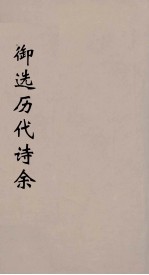 御选历代诗余